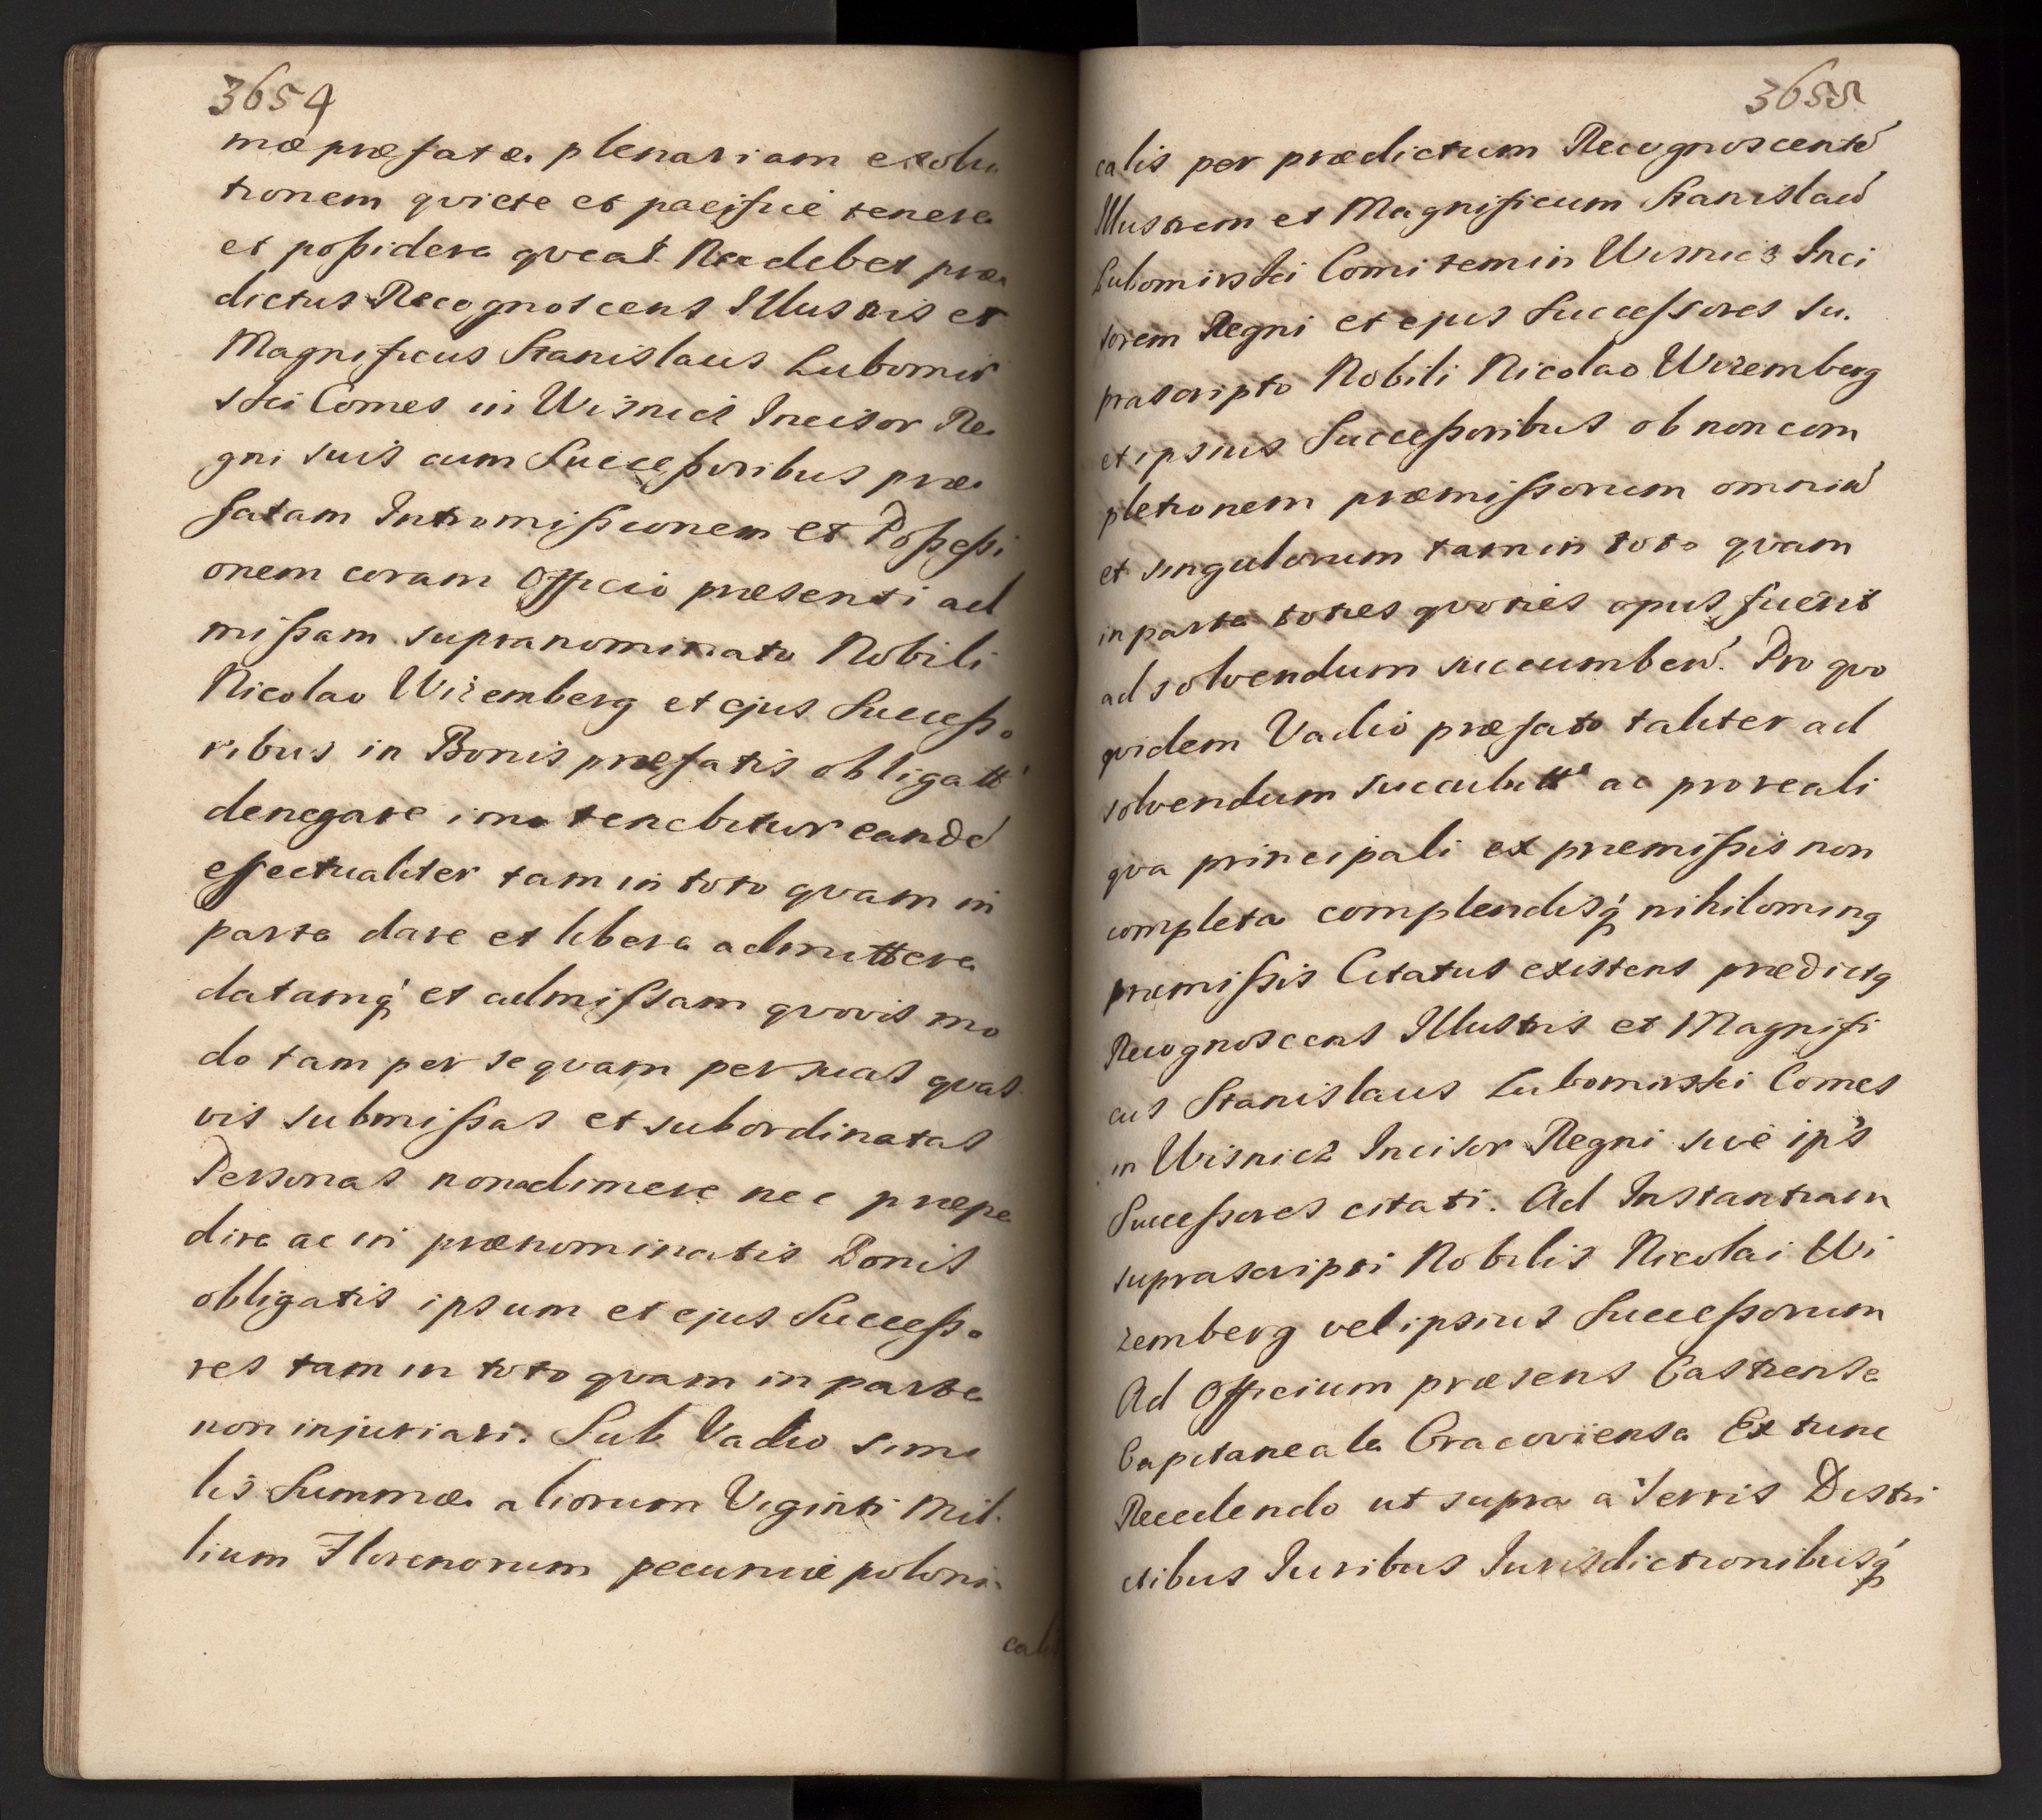 3654
mæ præfatæ plenariam exolu
tionem qviete et pacificè tenere
et poßidere qveat Nec debet præ
dictus Recognoscens Illustris et
Magnificus Stanislaus Lubomir
ski Comes in Wisnicz Incisor Re
gni suis cum Succeßoribus præ
fatam Intromißionem et Poßeßi
onem coram Officio præsenti ad
mißam supranominato Nobili
Nicolao Wizemberg et ejus Succeßo
ribus in Bonis præfatis obligatt'
denegare imo tenebitur eandé
effectualiter tam in toto qvam in
parte dare et libere admittere
datamq́ et admißam qvovis mo
do tam per se qvam per suas qvas
vis submißas et subordinatas
Personas non adimere nec præpe
dire ac in prænominatis Bonis
obligatis ipsum et ejus Succeßo
res tam in toto qvam in parte
non injuriari. Sub Vadio simi
lis Summæ aliorum Viginti Mil.
lium Florenorum pecuniæ poloni
cali
3655
calis per prædictum Recognoscenté
Illustrem et Magnificum Stanislaú
Lubomirski Comitem in Wisnicz Inci
sorem Regni et ejus Succeßores su.
prascripto Nobili Nicolao Wizemberg
et ipsius Succeßoribus ob non com
pletionem præmißorum omniú
et singulorum tam in toto qvam
in parte toties qvoties opus fuerit
ad solvendum succumben'. Pro qvo
qvidem Vadio præfato taliter ad
solvendum succubitt' ac pro reali
qva principali ex præmißis non
completa complendisq́ nihilominq
præmißis Citatus existens prædictq
Recognoscens Illustris et Magnifi
cus Stanislaus Lubomirski Comes
in Wisnicz Incisor Regni sive ip's
Succeßores citati. Ad Instantiam
suprascripti Nobilis Nicolai Wi
zemberg vel ipsius Succeßorum
Ad Officium præsens Castrense
Capitaneale Cracoviense Ex tunc
Recedendo ut supra à Terris Distri
ctibus Iuribus Iurisdictionibusq́